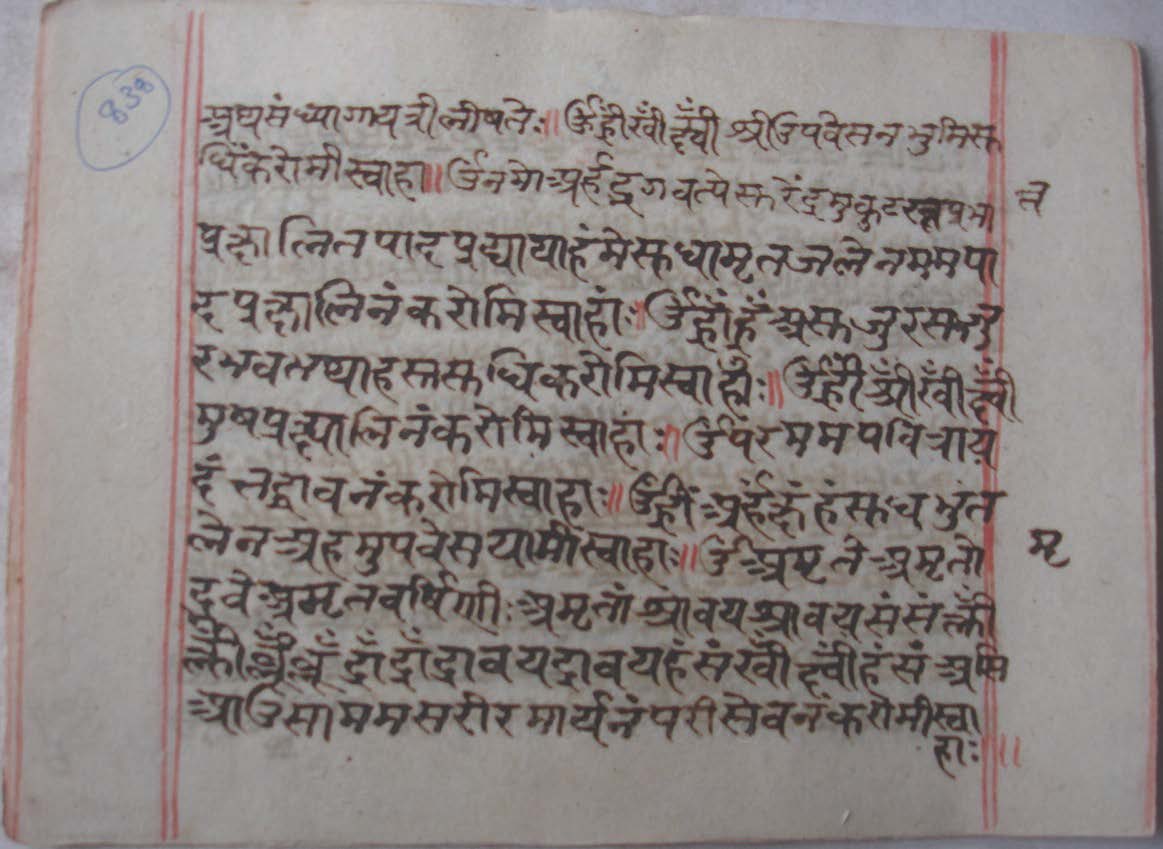 838
अथसंध्यागायत्रीलीषते:॥ ॐह्रीँ र्ख्वीँ क्ष्वीँ श्रीउपवेसनभुमिसु
धिंकरोमीस्वाहा॥ ॐनमोअर्हद्भगवत्येसुरेंद्रमुकुटरत्नप्रभा त
प्रक्षालितपादपद्मायाहंमेसुधामृतजलेनममपा
दप्रक्षालिनंकरोमिस्वाहां:॥ ॐह्राँह्रँ असुजुरसुजु
रभवतथाहस्तसुधिकरोमिस्वाहा:॥ ॐह्रीँ श्रीँ र्ख्वीँ क्ष्वीँ
मुषप्रक्ष्यालिनंकरोमिस्वाहां:॥ ॐपरममपवित्रायं
दंतद्रावनंकरोमिस्वाहा:॥ ॐह्रीं अर्हंक्षंहंसुधमुंत
लेनअहमुपवेसयामीस्वाहा:॥ ॐअमृतेअमृतो मृ
द्रवेअमृतवर्षिणी:अमृतांश्रावयश्रावयसंसंक्लीँ
क्लीँ ब्लूँ ब्लूँ द्राँ द्राँ द्रावयद्रावयहंसंर्ख्वीँ क्ष्वीँ हंसंअसि
आउसाममसरीरमार्यनंपरीसेवनंकरोमीस्वा
हा:॥